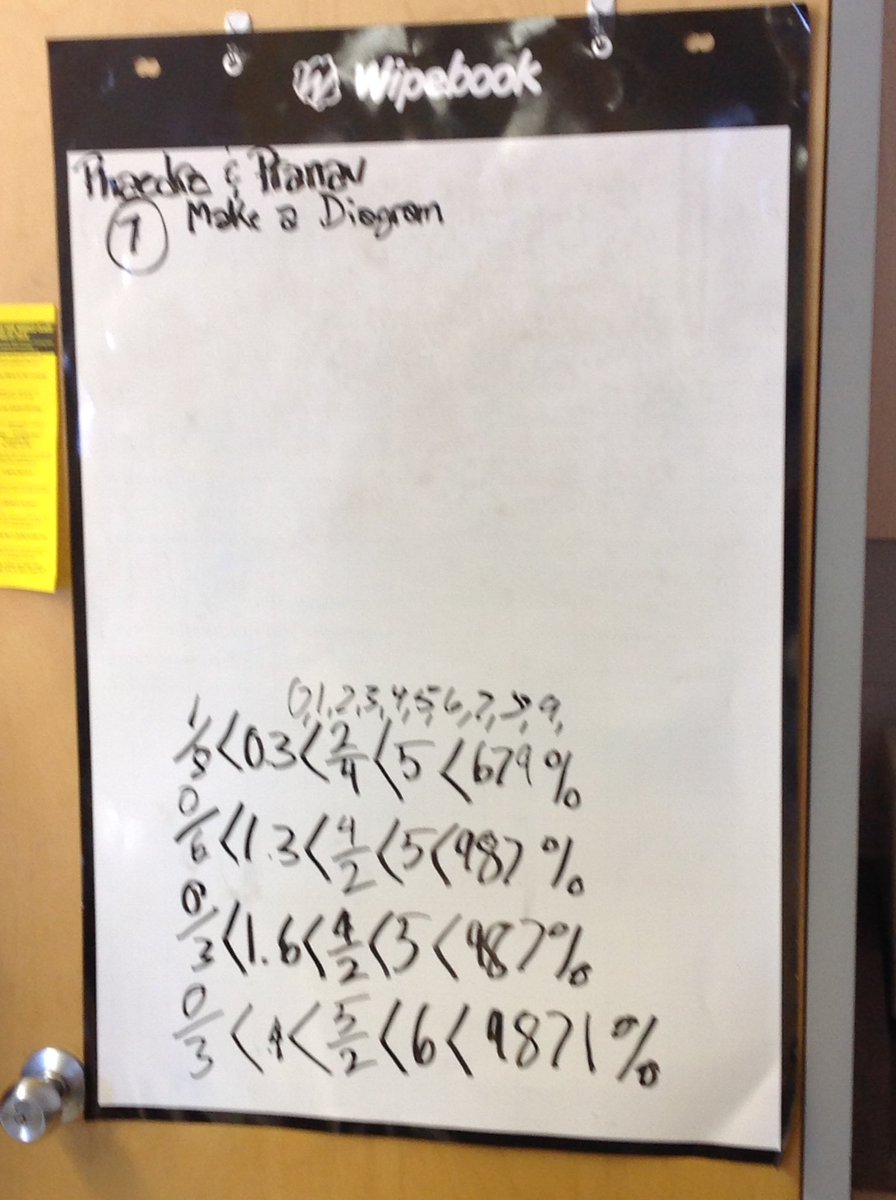 Wipebook
Phaedra & Pranav
7 Make a Diagram
0,1,2,3,4,5,6,7,8,9,
1/8 < 0.3 < 2/4 < 5 < 679%
0/6 < 1.3 < 4/2 < 5 < 987%
0/3 < 1.6 < 4/2 < 5 < 987%
0/3 < .4 < 5/2 < 6 < 9871%